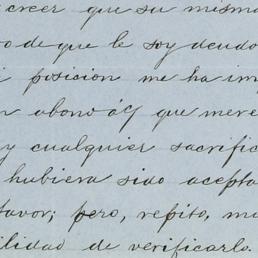 creer que su mismo
o de que le soy deudo
i posicion me ha im
n abono á que mere
y cualquier sacrific
hubiera sido acepta
favor; pero, repito, mi
ilidad de verificarlo.